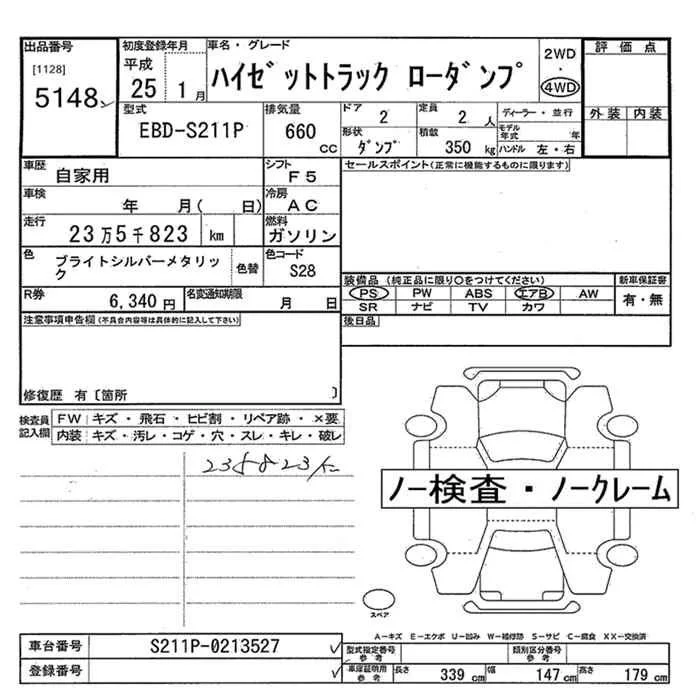 出品番号
[1128]
5148
初度登録年月
平成
25 1月
車名・グレード
ハイゼットトラック ローダンプ
2WD
・
4WD
評価点
外装 内装
型式
EBD-S211P
排気量
660 CC
ドア
2
定員
2人
ディーラー・並行
形状
ダンプ
積載
350 kg
モデル年式 年
ハンドル 左・右
車歴
自家用
シフト
F5
セールスポイント(正常に機能するものに限ります)
車検
年 月( 日)
冷房
AC
走行
23万5千823 km
燃料
ガソリン
色
ブライトシルバーメタリック
色替
色コード
S28
装備品(純正品に限り○をつけてください)
新車保証書
PS PW ABS エアB AW
有・無
SR ナビ TV カワ
R券
6,340円
名変通知期限
月 日
後日品
注意事項申告欄(不具合内容等は具体的に記入して下さい)
修復歴 有〔箇所 〕
検査員記入欄
FW キズ・飛石・ヒビ割・リペア跡・×要
内装 キズ・汚レ・コゲ・穴・スレ・キレ・破レ
ノー検査・ノークレーム
スペア
A-キズ E-エクボ U-凹み W-補修跡 S-サビ C-腐食 XX-交換済
車台番号
S211P-0213527
型式指定番号
参考
類別区分番号
参考
登録番号
車庫証明用
参考
長さ 339 cm 幅 147 cm 高さ 179 cm